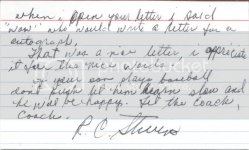 when, open your letter i said
"wow" who would write a letter for a
autograph.
That was a nice letter i appreciate
it for the nice words.
if your son plays baseball
don't push let him learn slow and
he will be happy. Let the coach
coach.
R. C. Stevens